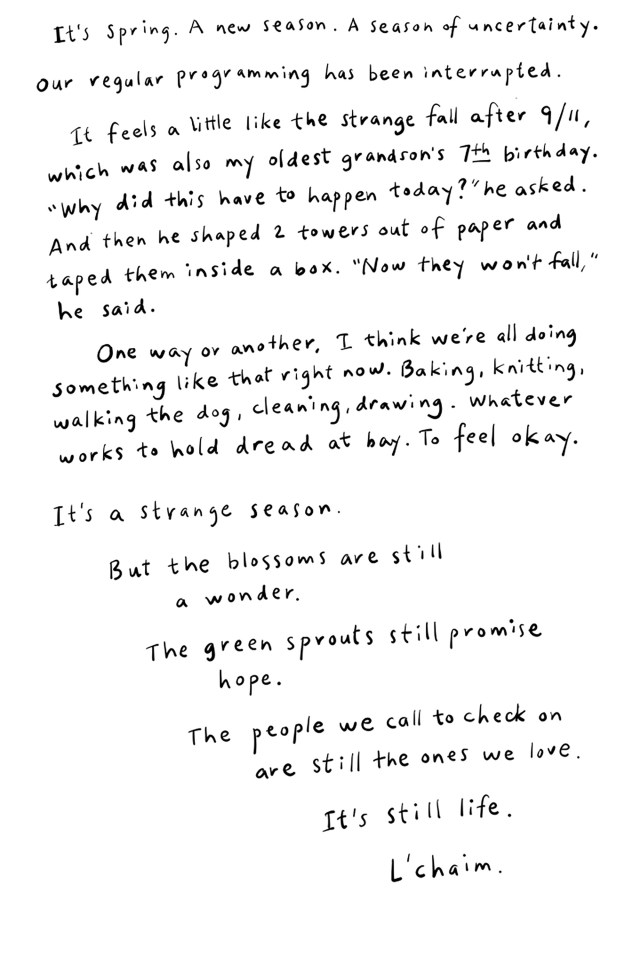 It's Spring. A new season. A season of uncertainty.
Our regular programming has been interrupted.
It feels a little like the strange fall after 9/11,
which was also my oldest grandson's 7th birthday.
"Why did this have to happen today?" he asked.
And then he shaped 2 towers out of paper and
taped them inside a box. "Now they won't fall,"
he said.
One way or another, I think we're all doing
something like that right now. Baking, knitting,
walking the dog, cleaning, drawing. Whatever
works to hold dread at bay. To feel okay.
It's a strange season.
But the blossoms are still
a wonder.
The green sprouts still promise
hope.
The people we call to check on
are still the ones we love.
It's still life.
L'chaim.